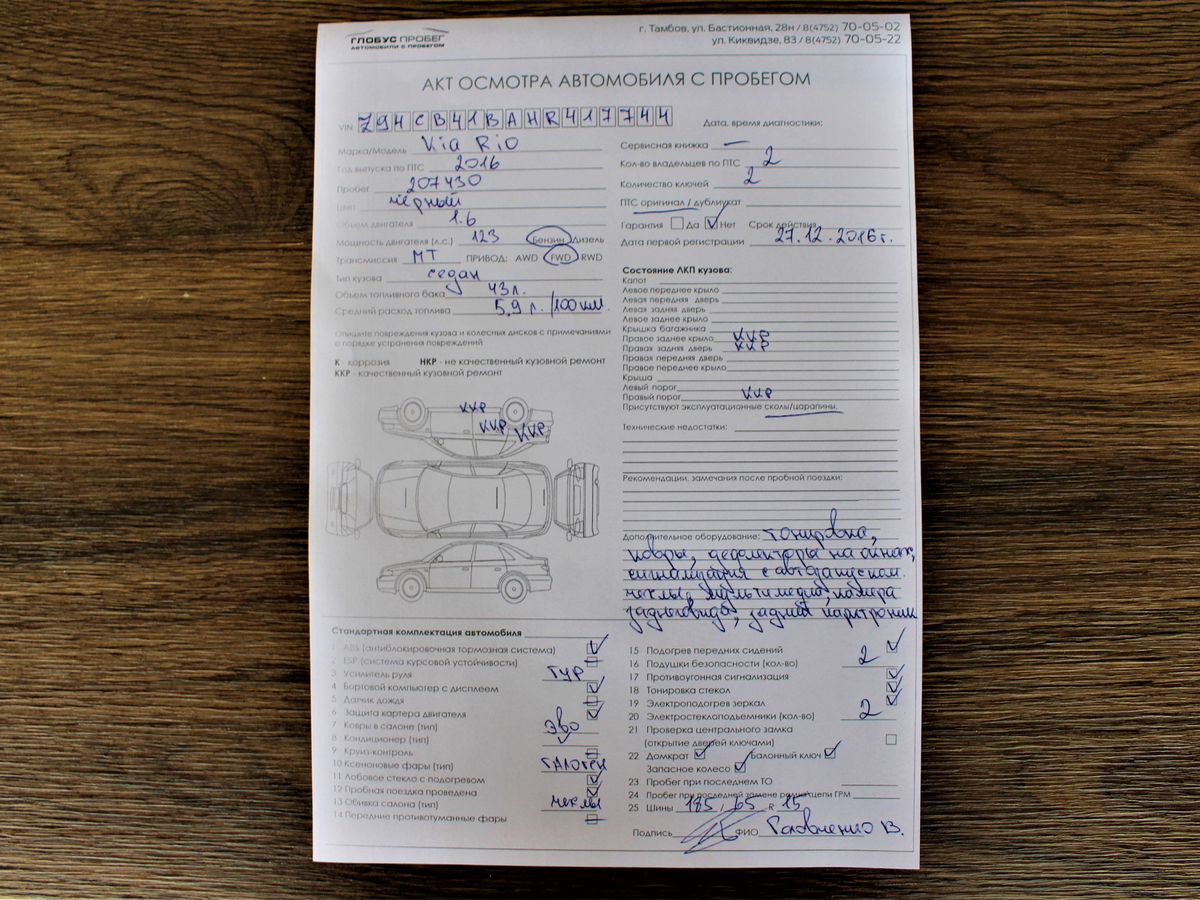 ГЛОБУС ПРОБЕГ
АВТОМОБИЛИ С ПРОБЕГОМ
г. Тамбов, ул. Бастионная, 28н / 8(4752) 70-05-02
ул. Киквидзе, 83 / 8(4752) 70-05-22
АКТ ОСМОТРА АВТОМОБИЛЯ С ПРОБЕГОМ
VIN Z94CB41BAHR417744
Марка/Модель Kia Rio
Год выпуска по ПТС 2016
Пробег 207430
Цвет чёрный
Объем двигателя 1.6
Мощность двигателя (л.с.) 123 Бензин Дизель
Трансмиссия МТ ПРИВОД: AWD FWD RWD
Тип кузова седан
Объем топливного бака 43 л.
Средний расход топлива 5,9 л. /100 км.
Опишите повреждения кузова и колесных дисков с примечаниями
о порядке устранения повреждений
К - коррозия НКР - не качественный кузовной ремонт
ККР - качественный кузовной ремонт
ККР
ККР
ККР
Дата, время диагностики:
Сервисная книжка —
Кол-во владельцев по ПТС 2
Количество ключей 2
ПТС оригинал / дубликат
Гарантия Да Нет Срок действия
Дата первой регистрации 27.12.2016 г.
Состояние ЛКП кузова:
Капот
Левое переднее крыло
Левая передняя дверь
Левая задняя дверь
Левое заднее крыло
Крышка багажника
Правое заднее крыло ККР
Правая задняя дверь ККР
Правая передняя дверь
Правое переднее крыло
Крыша
Левый порог
Правый порог ККР
Присутствуют эксплуатационные сколы/царапины.
Технические недостатки:
Рекомендации, замечания после пробной поездки:
Дополнительное оборудование: тонировка,
ковры, дефлекторы на окнах,
сигнализация с автозапуском.
чехлы, мультимедиа, камера
заднего вида, задний парктроник
Стандартная комплектация автомобиля
1 ABS (антиблокировочная тормозная система)
2 ESP (система курсовой устойчивости)
3 Усилитель руля ГУР
4 Бортовой компьютер с дисплеем
5 Датчик дождя
6 Защита картера двигателя
7 Ковры в салоне (тип) эво
8 Кондиционер (тип)
9 Круиз-контроль
10 Ксеноновые фары (тип) галоген
11 Лобовое стекло с подогревом
12 Пробная поездка проведена
13 Обивка салона (тип) чехлы
14 Передние противотуманные фары
15 Подогрев передних сидений
16 Подушки безопасности (кол-во) 2
17 Противоугонная сигнализация
18 Тонировка стекол
19 Электроподогрев зеркал
20 Электростеклоподъемники (кол-во) 2
21 Проверка центрального замка
(открытие дверей ключами)
22 Домкрат Балонный ключ
Запасное колесо
23 Пробег при последнем ТО
24 Пробег при последней замене ремня/цепи ГРМ
25 Шины 185 / 65 R 15
Подпись ФИО В.